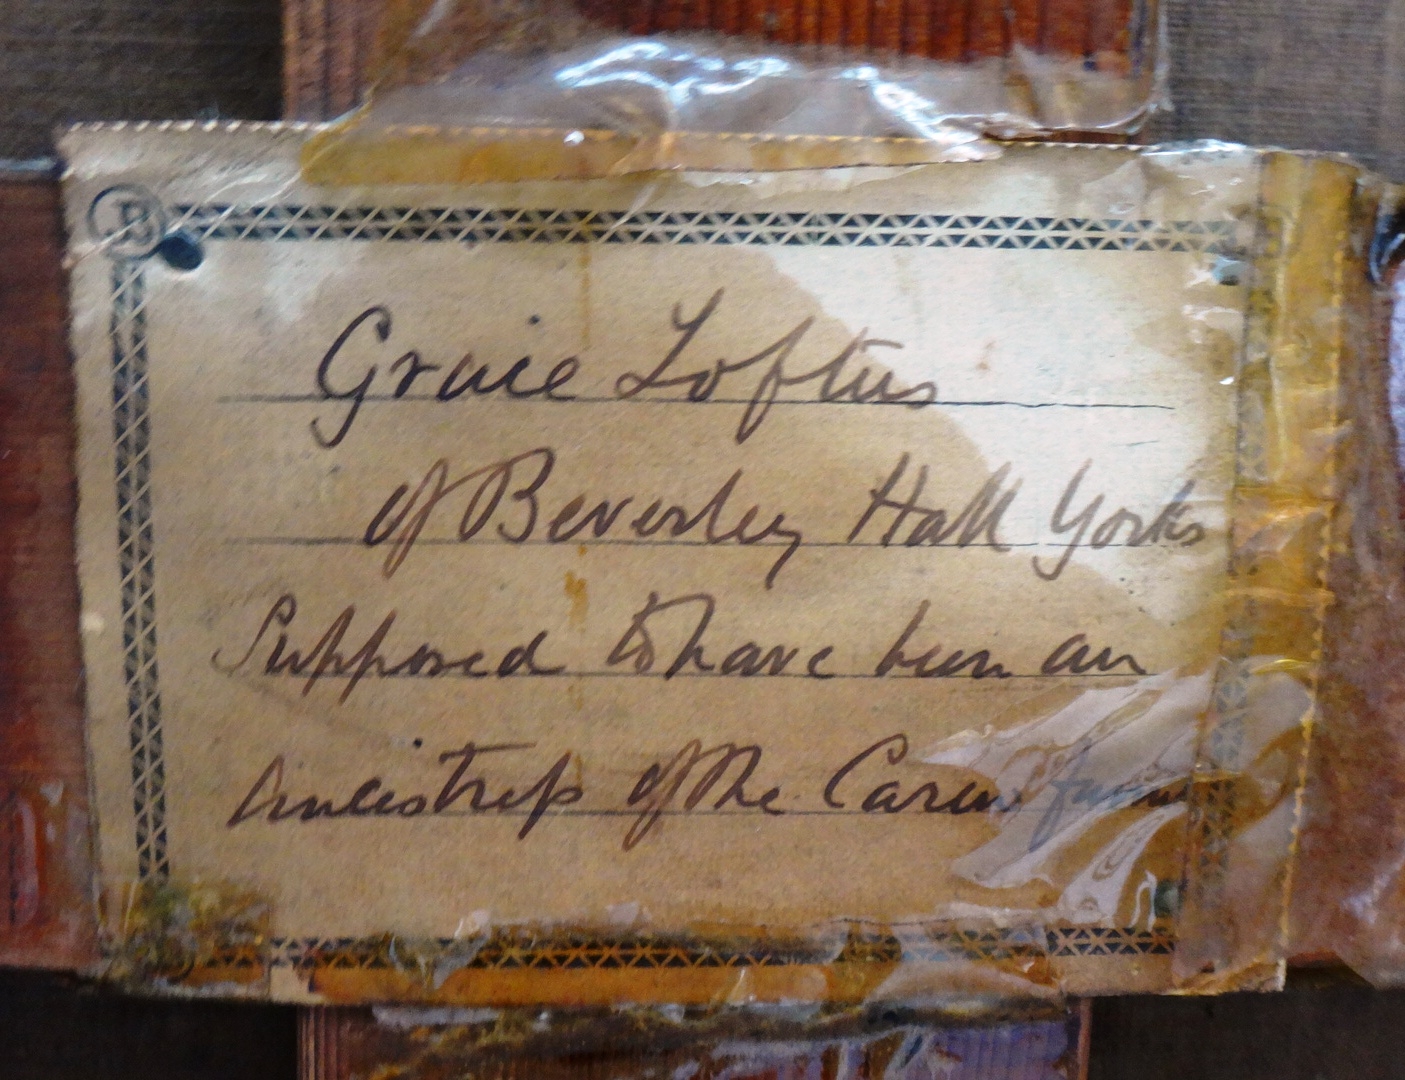 B
Gracie Loftus
of Beverley Hall Yorks
Supposed to have been an
Ancestress of the Carew